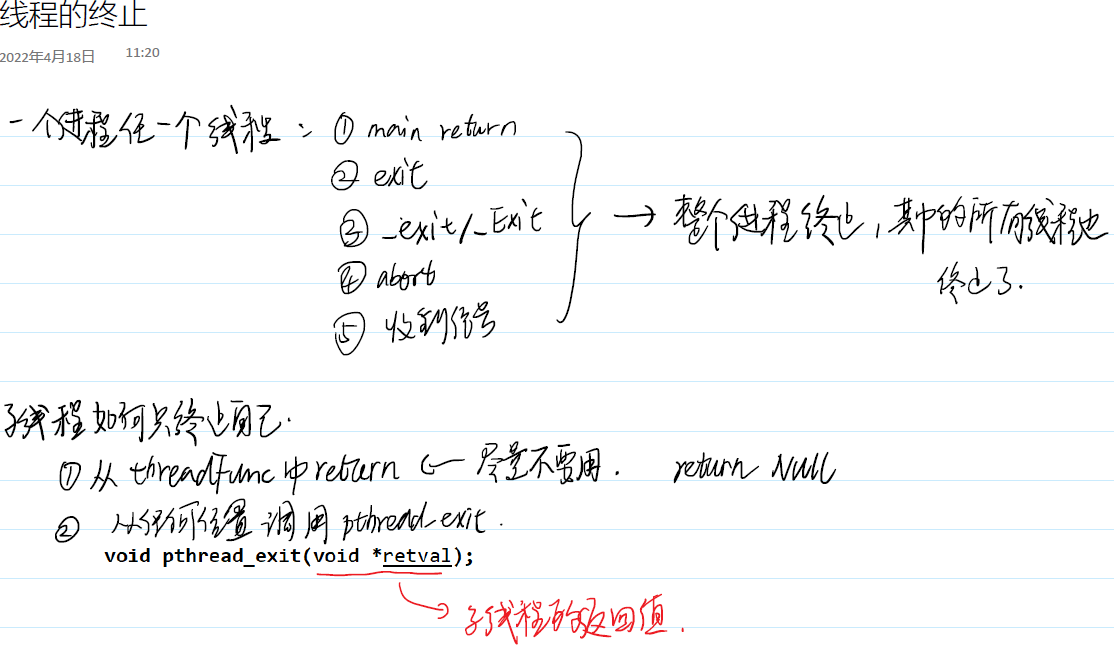 线程的终止
2022年4月18日 11:20
一个进程任一个线程: ① main return
② exit
③ _exit/_Exit
④ abort
⑤ 收到信号
→ 整个进程终止,其中的所有线程也
终止了.
子线程如何只终止自己.
① 从 threadFunc 中 return ← 尽量不要用. return NULL
② 从任何位置 调用 pthread_exit.
void pthread_exit(void *retval);
子线程的返回值.